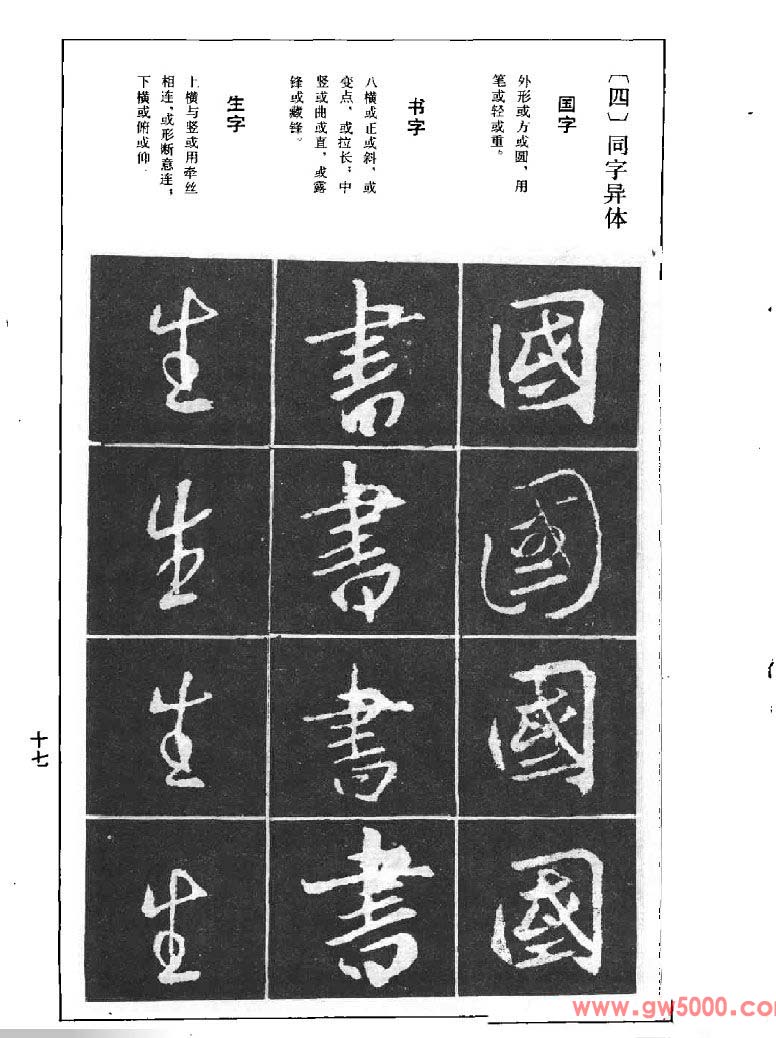 〔四〕同字异体
国字
外形或方或圆，用
笔或轻或重。
书字
八横或正或斜，或
变点，或拉长；中
竖或曲或直，或露
锋或藏锋。
生字
上横与竖或用牵丝
相连，或形断意连，
下横或俯或仰.
國
國
國
國
書
書
書
書
生
生
生
生
十七
www.gw5000.com